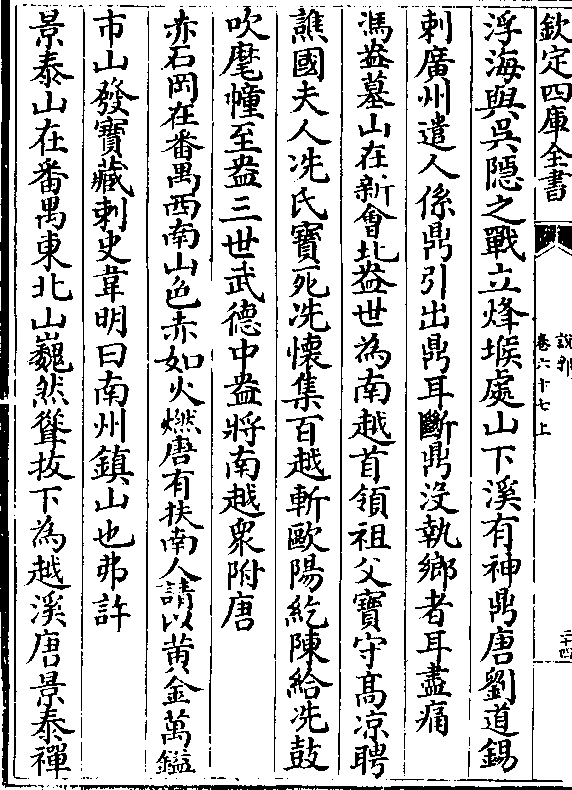 欽定四庫全書
說郛
卷六十七上
二十四
浮海與吳隱之戰立烽堠處山下溪有神鼎唐劉道錫
刺廣州遣人係鼎引出鼎耳斷鼎没執鄉者耳盡痛
馮盎墓山在新會北盎世為南越首領祖父寳守髙凉聘
譙國夫人冼氏寳死冼懐集百越斬歐陽紇陳給冼鼓
吹麾幢至盎三世武德中盎將南越衆附唐
赤石岡在番禺西南山色赤如火燃唐有扶南人請以黄金萬鎰
市山發寳藏刺史韋明曰南州鎮山也弗許
景泰山在番禺東北山巍然聳抜下為越溪唐景泰禪